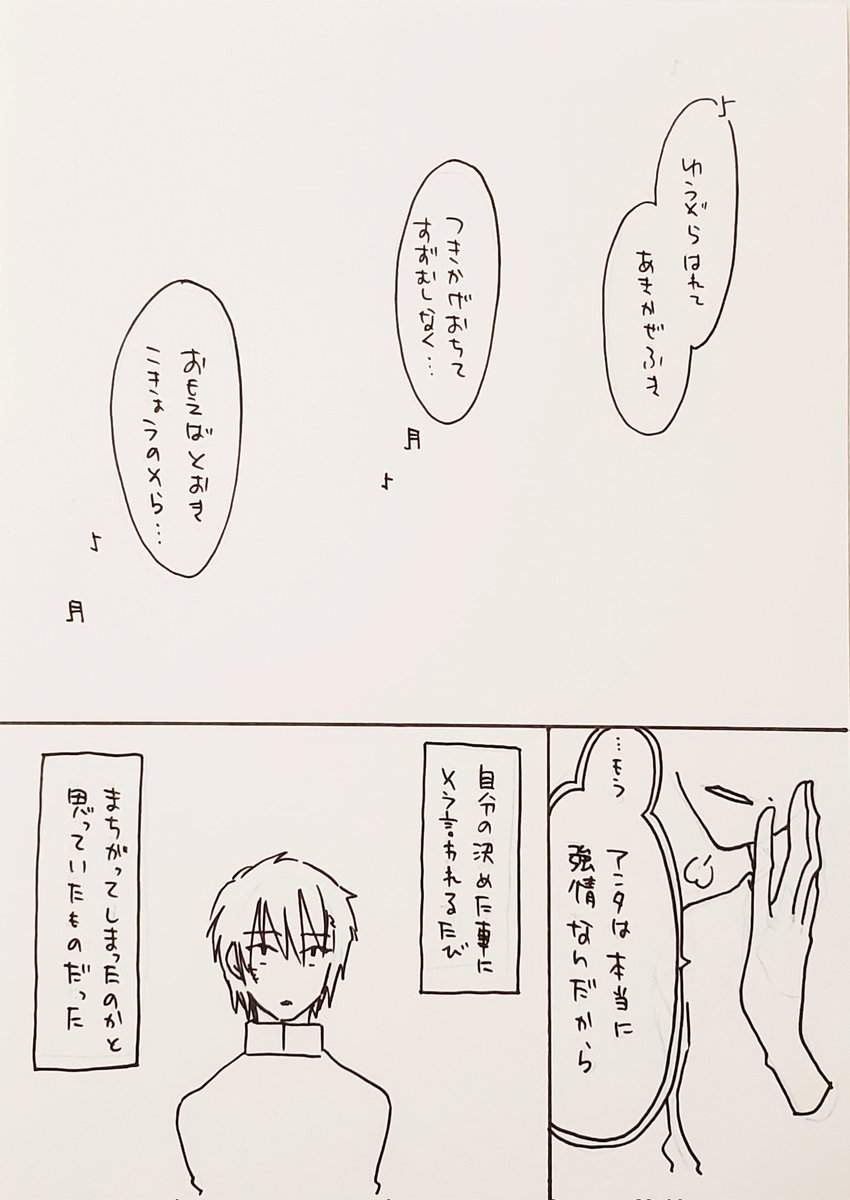 ゆうぞらはれて
あきかぜふき
つきかげおちて
すずむしなく…
おもえばとおき
こきょうのそら…
…もう
アンタは本当に
強情なんだから
自分の決めた事に
そう言われるたび
まちがってしまったのかと
思っていたものだった